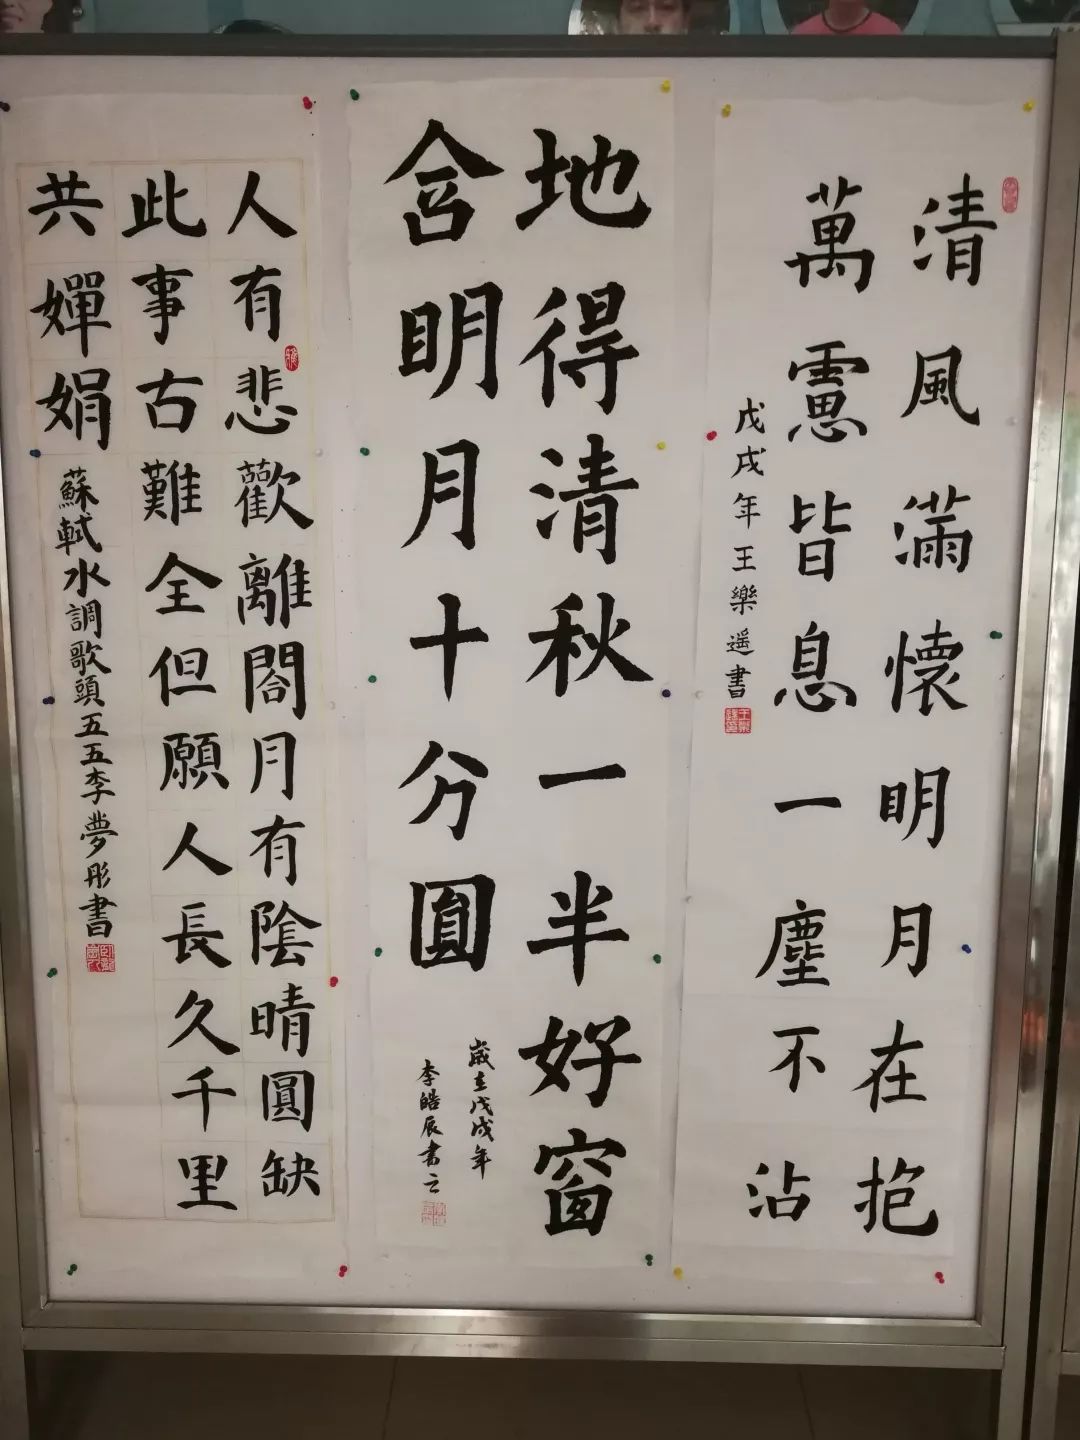 清風滿懷明月在抱
萬慮皆息一塵不沾
戊戌年王樂遥書
地得清秋一半好窗
含明月十分圓
歲在戊戌年
李皓辰書之
人有悲歡離閤月有陰晴圓缺
此事古難全但願人長久千里
共嬋娟
蘇軾水調歌頭五五李夢彤書